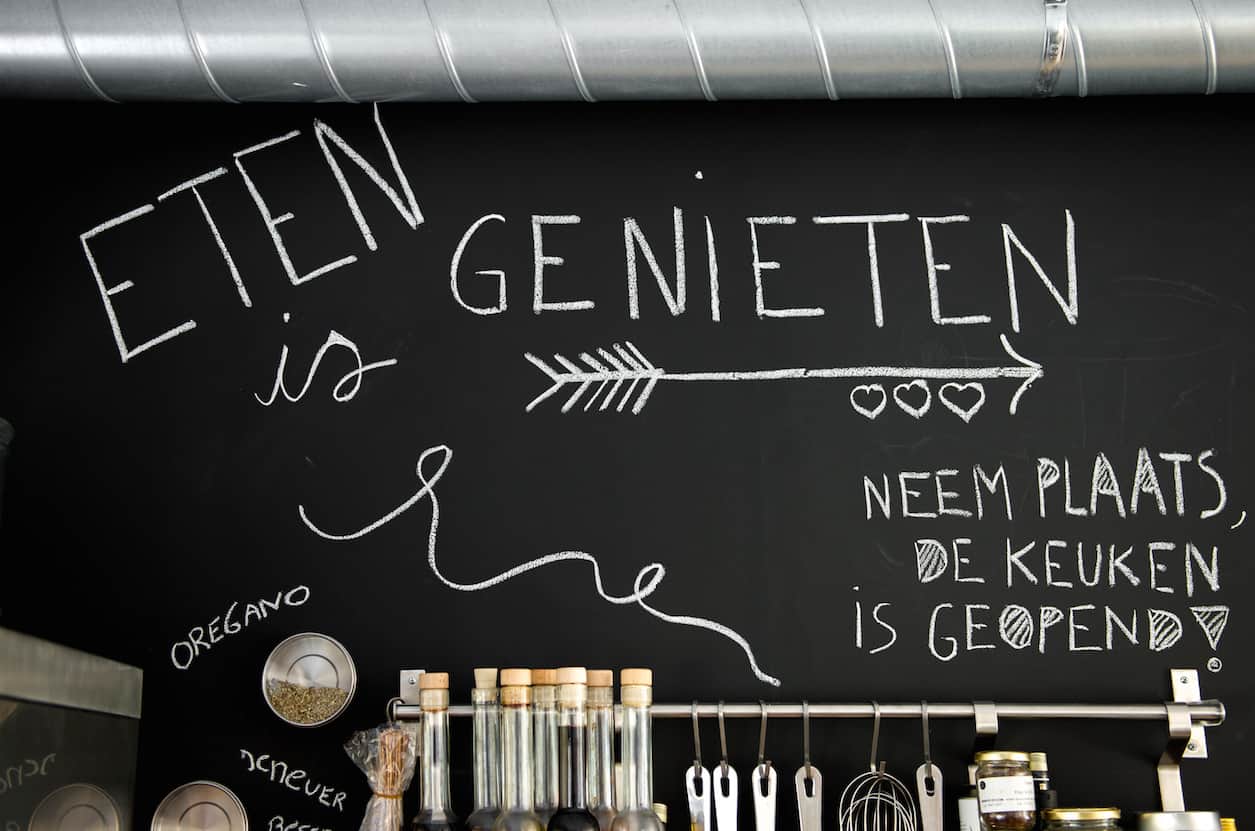 ETEN
is
GENIETEN
NEEM PLAATS,
DE KEUKEN
IS GEOPEND!
OREGANO